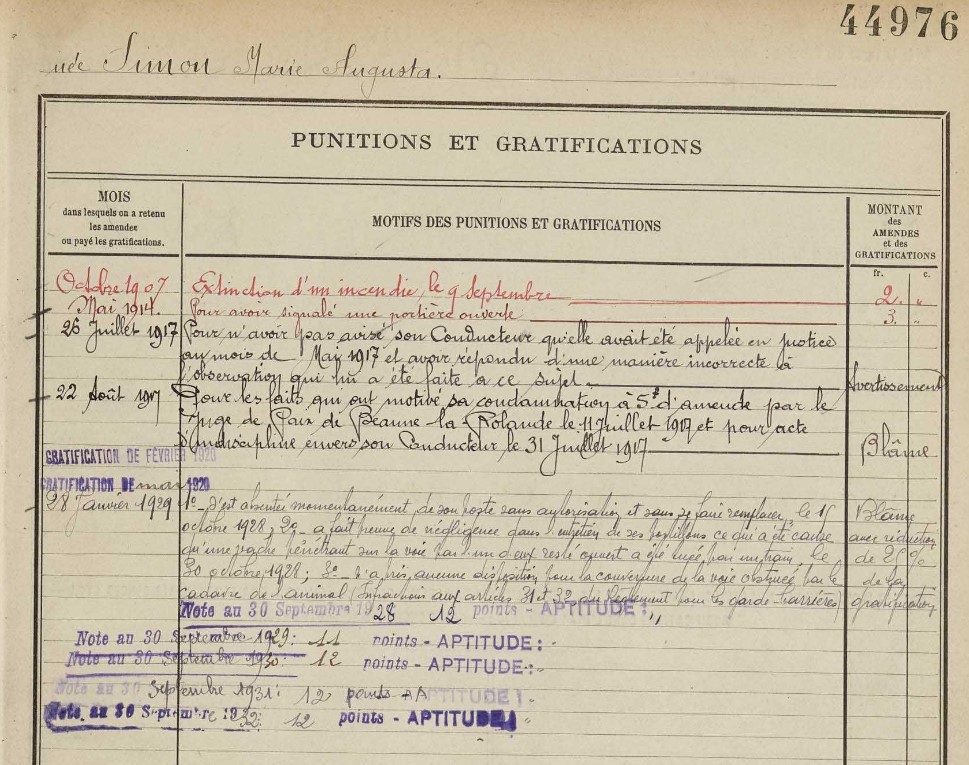 44976
née Simon Marie Augusta.
PUNITIONS ET GRATIFICATIONS
MOIS
dans lesquels on a retenu
les amendes
ou payé les gratifications.
MOTIFS DES PUNITIONS ET GRATIFICATIONS
MONTANT
des
AMENDES
et des
GRATIFICATIONS
fr. c.
Octobre 1907 Extinction d'un incendie, le 9 septembre 2. "
Mai 1914. Pour avoir signalé une portière ouverte 3. "
26 Juillet 1917 Pour n'avoir pas avisé son Conducteur qu'elle avait été appelée en justice
au mois de Mai 1917 et avoir répondu d'une manière incorrecte à
l'observation qui lui a été faite à ce sujet. Avertissement
22 Août 1917 Pour les faits qui ont motivé sa condamnation à 5f d'amende par le
Juge de Paix de Beaune la Rolande le 11 Juillet 1917 et pour acte
d'indiscipline envers son Conducteur le 31 Juillet 1917 Blâme
GRATIFICATION DE FÉVRIER 1920
GRATIFICATION DE mars 1920
28 Janvier 1929 1º_ s'est absentée momentanément de son poste sans autorisation et sans se faire remplacer, le 15 Blâme
octobre 1928; 2º_ a fait preuve de négligence dans l'entretien de ses portillons ce qui a été cause avec réduction
qu'une vache pénétrant sur la voie par l'un d'eux resté ouvert a été tuée par un train, le de 25 %
30 octobre 1928; 3º_ n'a pris aucune disposition pour la couverture de la voie obstruée par le de la
cadavre de l'animal (Infractions aux articles 31 et 32 du Règlement pour les garde-barrières) gratification
Note au 30 Septembre 1928 12 points - APTITUDE: "
Note au 30 Septembre 1929: 11 points - APTITUDE: -
Note au 30 Septembre 1930: 12 points - APTITUDE: -
Note au 30 Septembre 1931: 12 points - APTITUDE: -
Note au 30 Septembre 1932: 12 points - APTITUDE: "